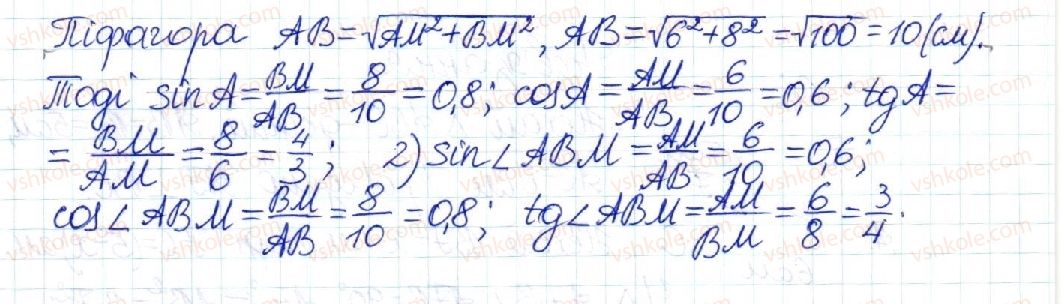 Піфагора AB=√AM²+BM², AB=√6²+8²=√100=10(см).
Тоді sinA=BM/AB=8/10=0,8; cosA=AM/AB=6/10=0,6; tgA=
=BM/AM=8/6=4/3; 2) sin∠ABM=AM/AB=6/10=0,6;
cos∠ABM=BM/AB=8/10=0,8; tg∠ABM=AM/BM=6/8=3/4.